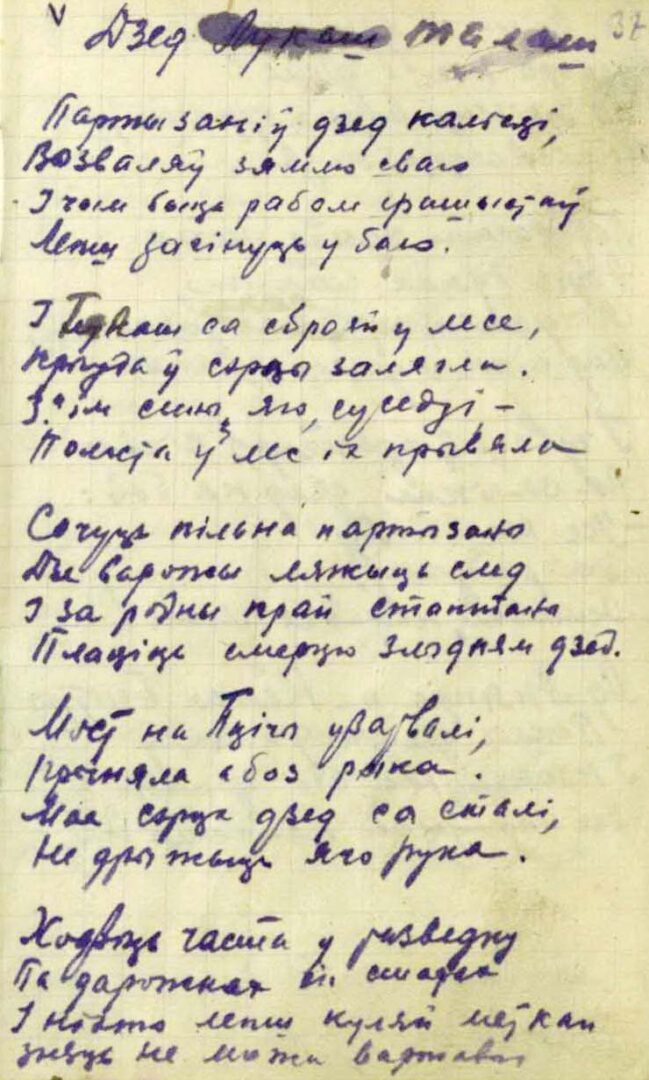 37
Дзед Лукаш Талаш
Партызаніў дзед калісці,
Вызваляў зямлю сваю
І чым быць рабом фашыстаў
Лепш загінуць у баю.
І Лукаш са зброяй у лесе,
Крыўда ў сэрцы залягла.
З ім сыны яго, суседзі, –
Помста ў лес іх прывяла
Сочуць пільна партызаны
Дзе варожы ляжыць след
І за родны край стаптаны
Плаціць смерцю злыдням дзед.
Мост на Пцічы узарвалі,
абоз рака.
Мае сэрца дзед са сталі,
Не дрыжыць яго рука.
Ходзіць часта у разведку
Па дарожках
І ніхто лепш куляй меткай
зняць не можа